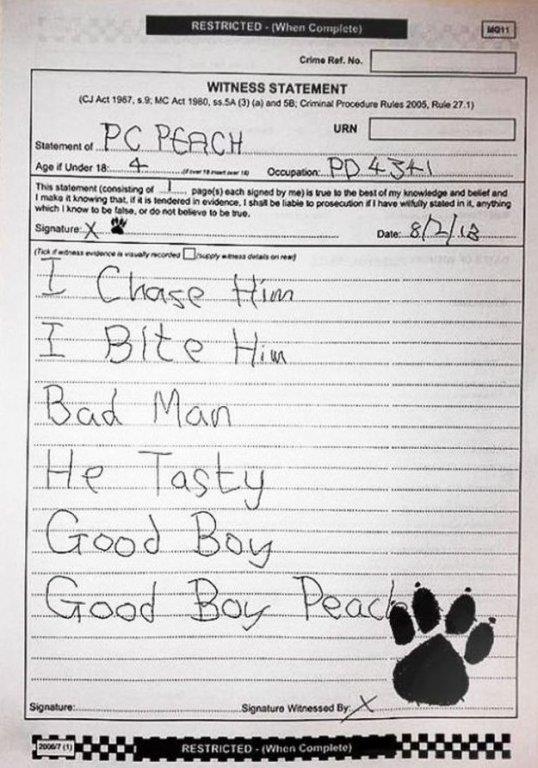 RESTRICTED - (When Complete)
MG11
Crime Ref. No.
WITNESS STATEMENT
(CJ Act 1967, s.9; MC Act 1980, ss.5A (3) (a) and 5B; Criminal Procedure Rules 2005, Rule 27.1)
URN
Statement of PC PEACH
Age if Under 18: 4 (if over 18 insert over 18) Occupation: PD 4341
This statement (consisting of 1 page(s) each signed by me) is true to the best of my knowledge and belief and
I make it knowing that, if it is tendered in evidence, I shall be liable to prosecution if I have wilfully stated in it, anything
which I know to be false, or do not believe to be true.
Signature: X Date: 8/2/13
(Tick if witness evidence is visually recorded (supply witness details on rear)
I Chase Him
I BIte Him
Bad Man
He Tasty
Good Boy
Good Boy Peach
Signature: Signature Witnessed By: X
2006/7 (1)
RESTRICTED - (When Complete)